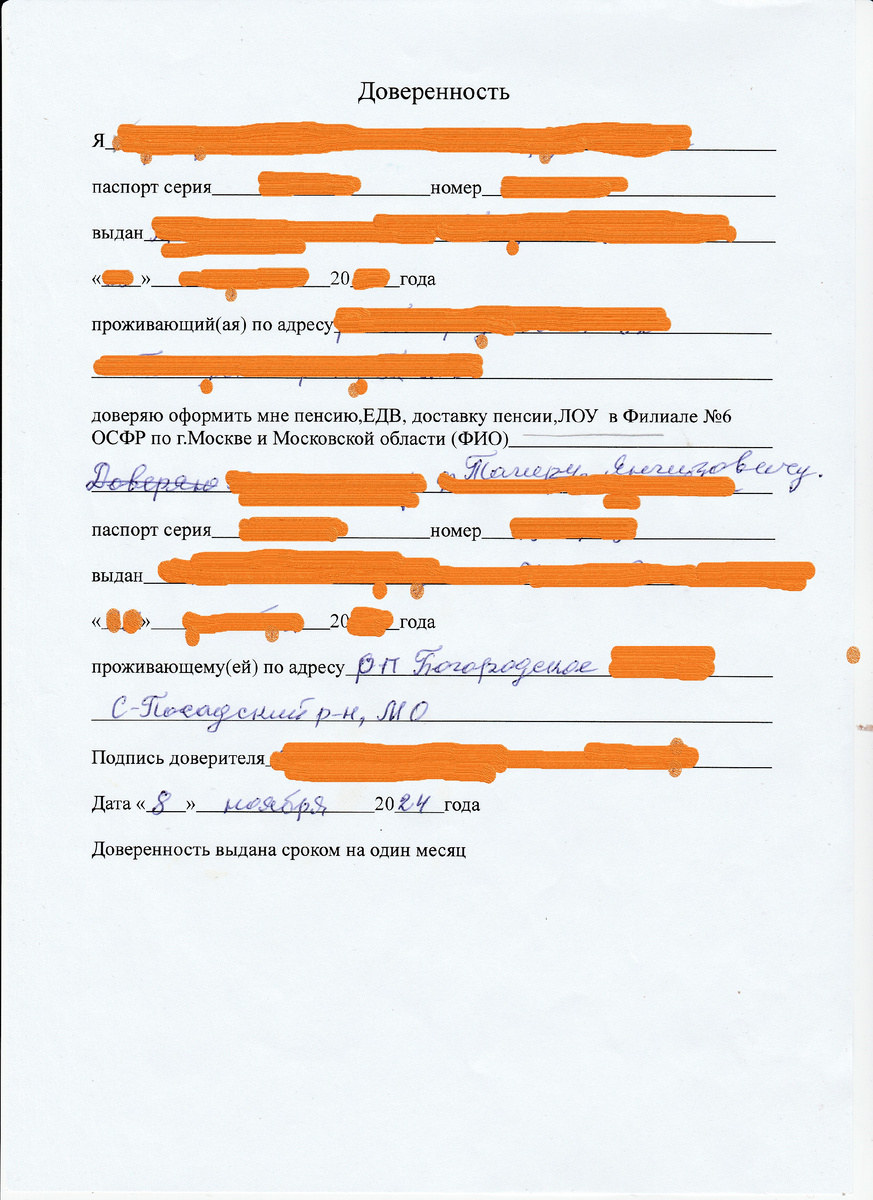 Доверенность
Я
паспорт серия номер
выдан
« » 20 года
проживающий(ая) по адресу
доверяю оформить мне пенсию,ЕДВ, доставку пенсии,ЛОУ в Филиале №6
ОСФР по г.Москве и Московской области (ФИО)
Доверяю
паспорт серия номер
выдан
« » 20 года
проживающему(ей) по адресу рп Богородское
С-Посадский р-н, МО
Подпись доверителя
Дата « 8 » ноября 2024 года
Доверенность выдана сроком на один месяц